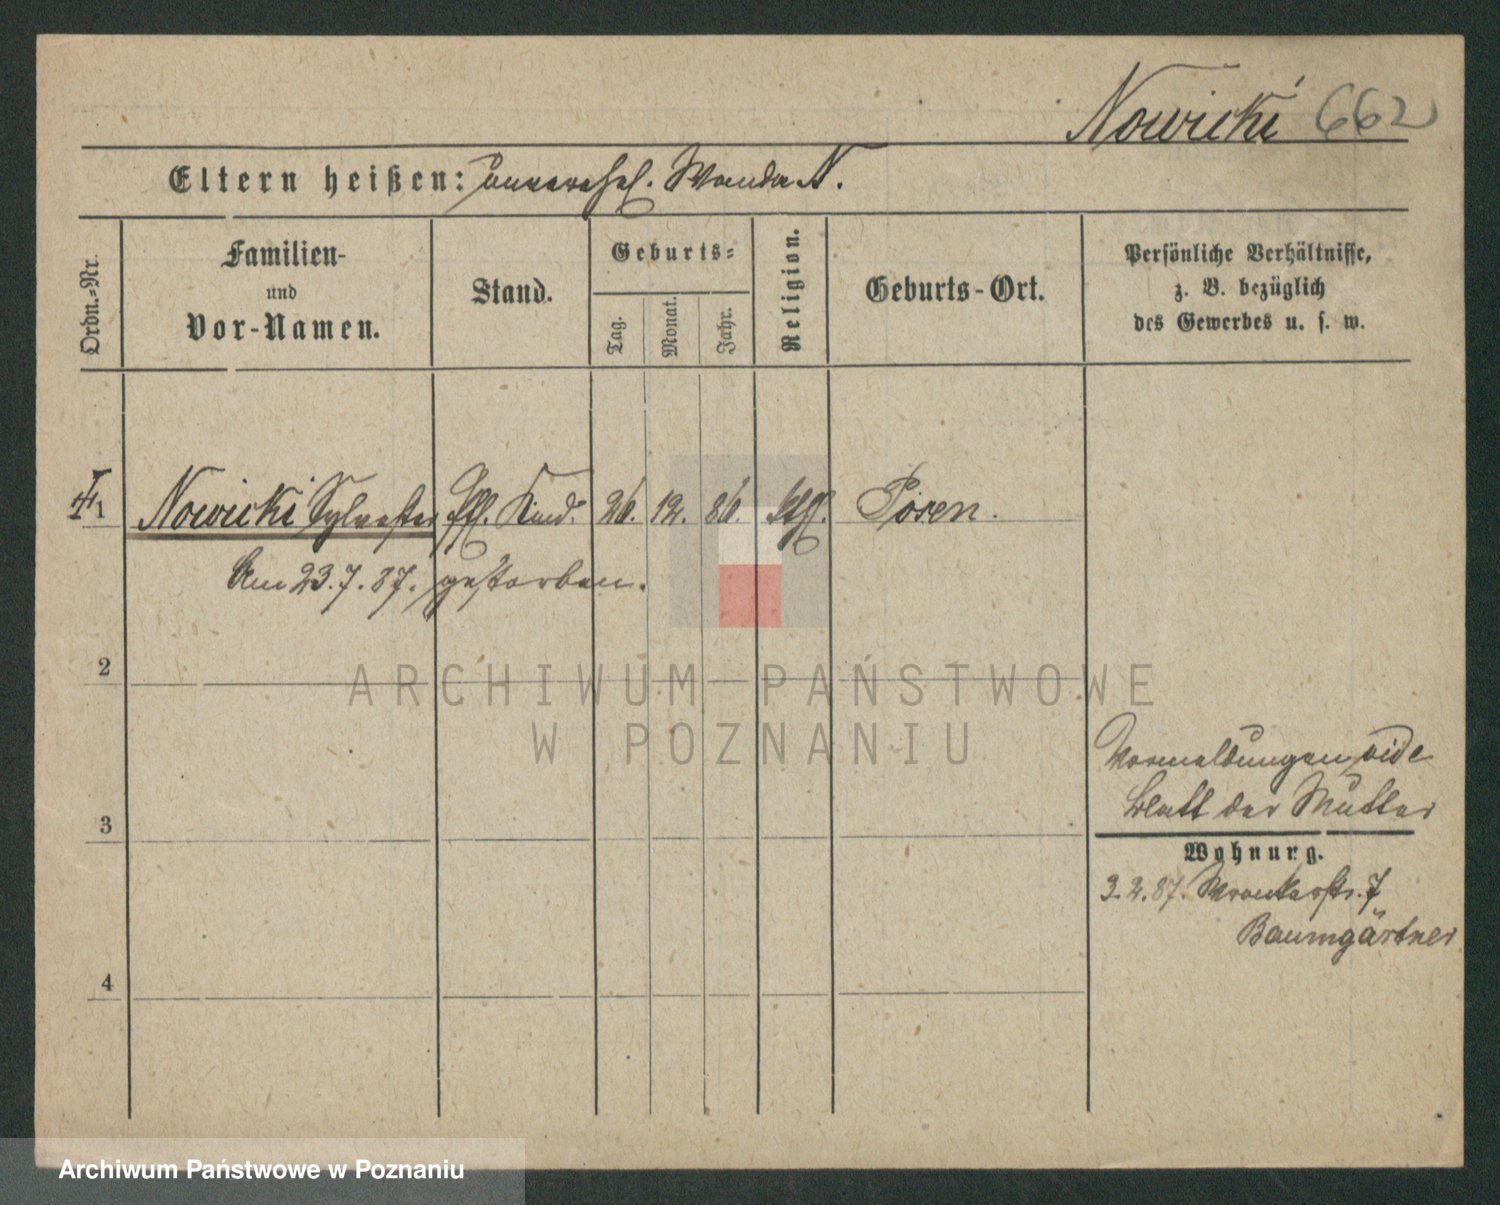 Nowicki 662
Eltern heißen: unverehel. Wanda N.
Ordn.-Nr.
Familien-
und
Vor-Namen.
Stand.
Geburts-
Tag.
Monat.
Jahr.
Religion.
Geburts-Ort.
Persönliche Verhältnisse,
z. B. bezüglich
des Gewerbes u. s. w.
1 Nowicki Sylvester Kind. 26. 12. 86. ktfl. Posen.
Am 23.7.87. gestorben.
2
ARCHIWUM PAŃSTWOWE
W POZNANIU
Vormeldungen vide
Blatt der Mutter
3
Wohnung.
3.2.87. Wronkerstr. 7
Baumgärtner
4
Archiwum Państwowe w Poznaniu